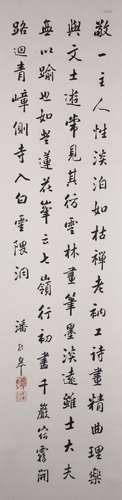 敬一主人性淡泊如枯禪老衲工詩畫精曲理樂
與文士遊常見其仿雲林畫筆墨淡遠雖士大夫
無以踰也如老蓮花峯云七嶺行初盡千巖宿霧開
路迴青嶂側寺入白雲隈
潘齡皋